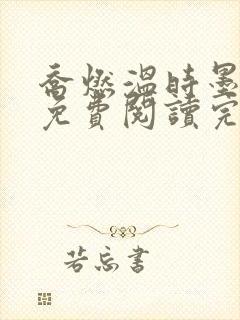 喬燃溫時墨
免費閱讀完
若忘書